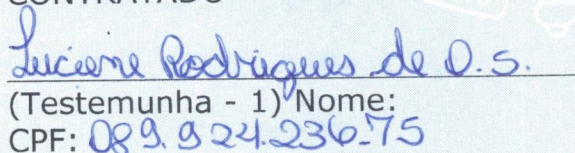 CONTRATADO
Luciene Rodrigues de O.S.
(Testemunha - 1) Nome:
CPF: 089.924.236-75